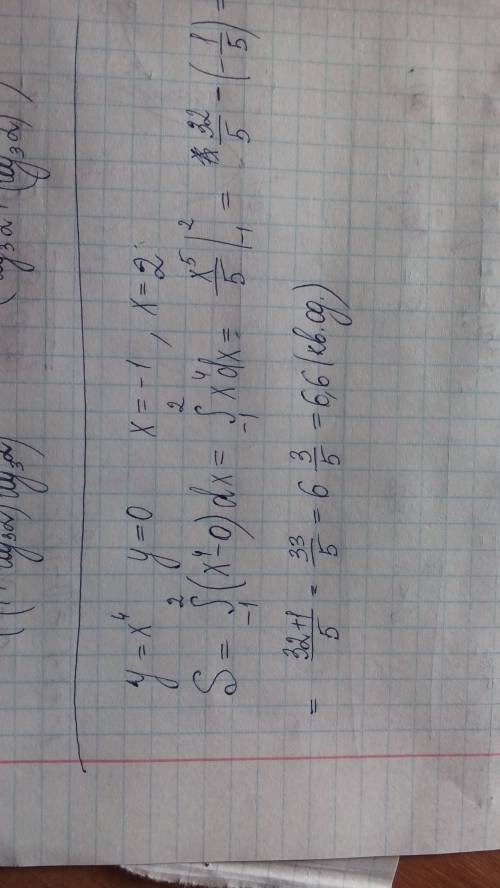 y = x⁴ y = 0 x = -1, x = 2
S = ∫₋₁² (x⁴ - 0) dx = ∫₋₁² x⁴ dx = x⁵/5 |₋₁² = 32/5 - (-1/5) =
= (32+1)/5 = 33/5 = 6 3/5 = 6,6 (кв.ед.)